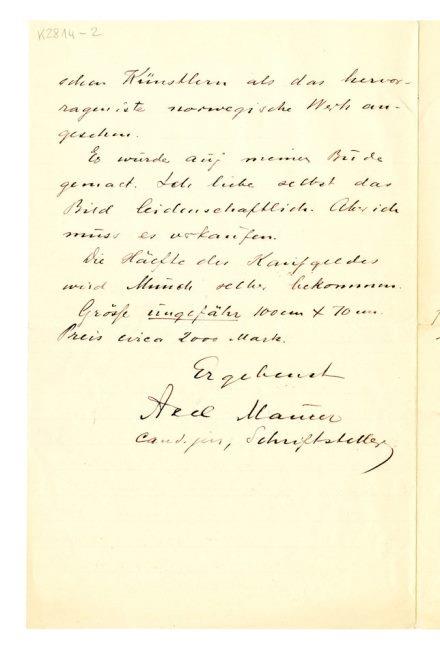 K2814-2
schen Künstlern als das hervor-
rageniste norwegische Werk an-
gesehen.
Es wurde auf meiner Bude
gemact. Ich liebe selbst das
Bild leidenschaftlich. Aber ich
muss es verkaufen.
Die Hälfte des Kaufgeldes
wird Munch selber bekommen.
Grösse ungefähr 100 cm X 70 cm.
Preis circa 2000 Mark.
Ergebenst
Maurer
cand. jur, Schriftsteller